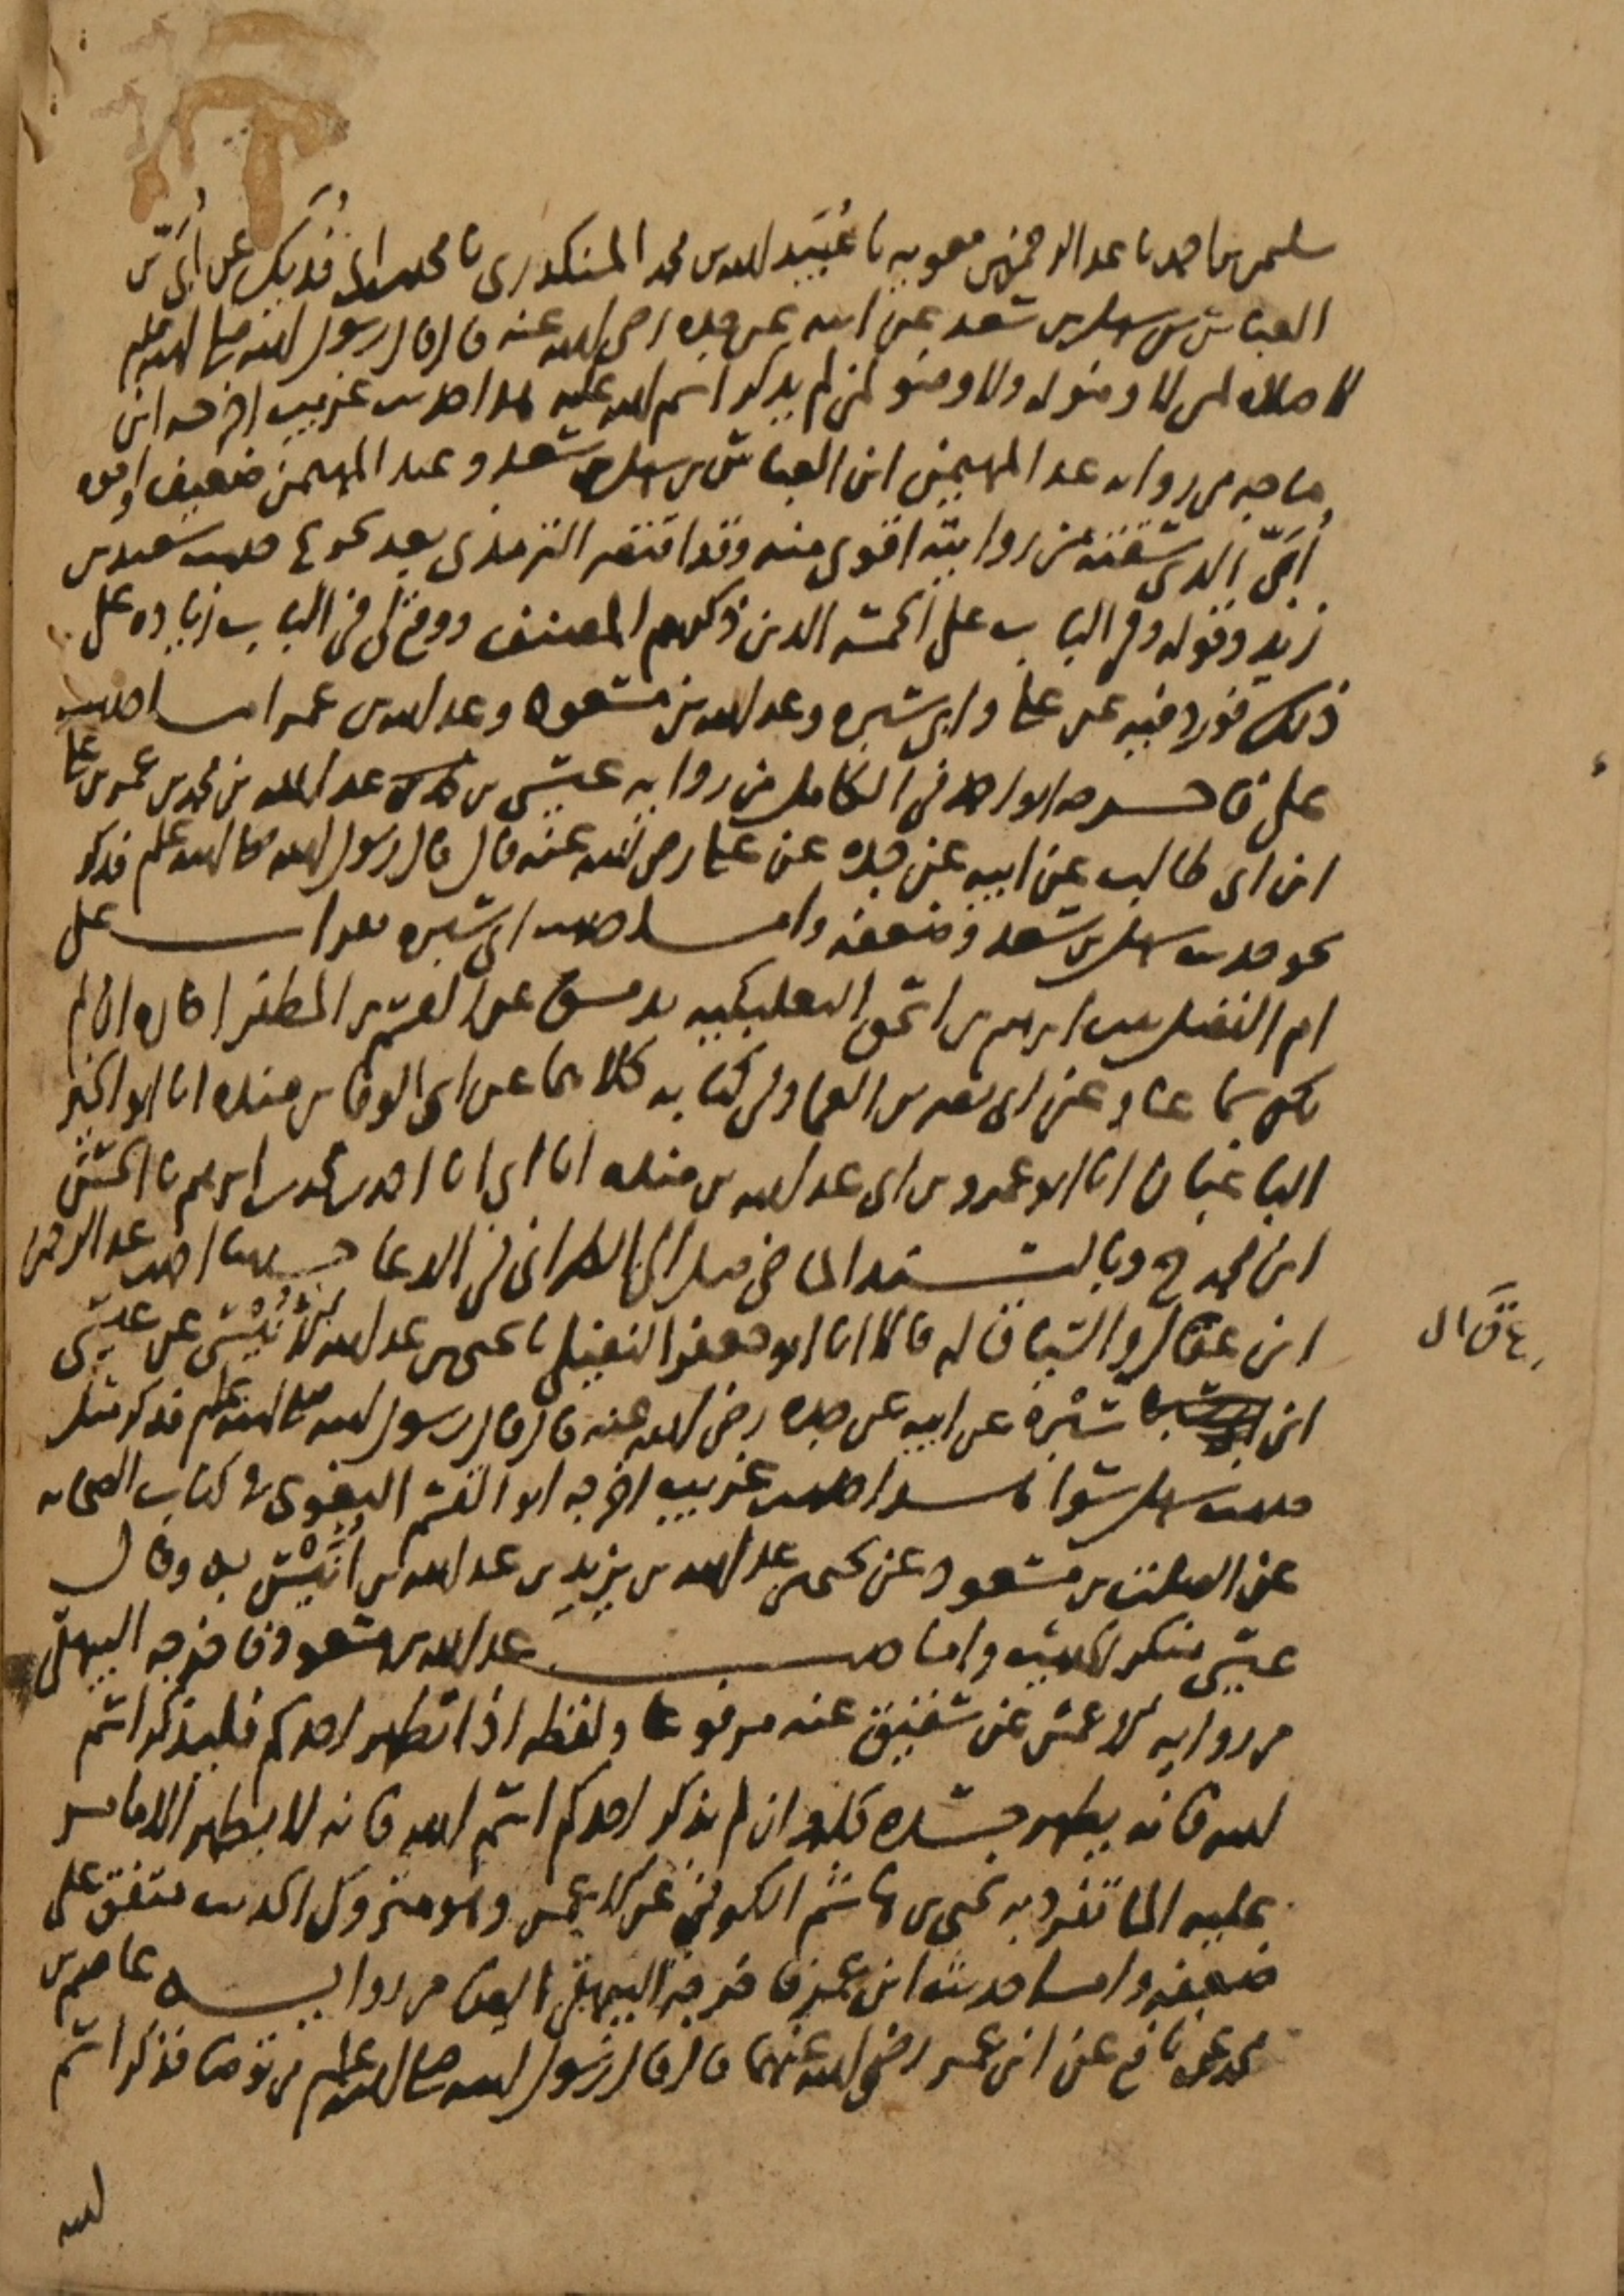 سليمن بن احمد نا عبد الرحمن بن معويه نا عُبَيد الله بن محمد المنكدرى نا محمد بن ابى فُدَيك عن أُبَىّ بن
العباس بن سهل بن سعد عن ابيه عن جده رضى الله عنه قال قال رسول الله صلى الله عليه وسلم
لا صلاه لمن لا وضو له ولا وضو لمن لم يذكر اسم الله عليه هذا حديث غريب اخرجه ابن
ماجه من روايه عبد المهيمن ابن العباس بن سهل بن سعد وعبد المهيمن ضعيف واخوه
أُبَىّ الذى سقته من روايته اقوى منه وقد اقتصر الترمذى بعد تخريج حديث سعيد بن
زيد وقوله وفى الباب على الخمسه الذين ذكرهم المصنف ووقع لى فى الباب زياده على
ذلك فورد فيه عن على وابى سبره وعبد الله بن مسعود وعبد الله بن عمر اما حديث
على فاخرجه ابو احمد فى الكامل من روايه عيسى بن عبد الله بن محمد بن عمر بن على
ابن ابى طالب عن ابيه عن جده عن على رضى الله عنه قال قال رسول الله صلى الله عليه وسلم فذكر
نحو حديث سهل بن سعد وضعفه واما حديث ابى سبره فقرات على
ام الفضل بنت ابرهيم بن اسحق البعلبكيه بدمشق عن القسم بن المظفر اجازه ان لم
يكن سماعا وعن ابى نصر بن العماد فى كتابه كلاهما عن ابى الوفا بن منده انا ابو الخير
الباغبان انا ابو عمرو بن ابى عبد الله بن منده انا ابى انا احمد بن محمد بن ابرهيم نا الحسن
ابن محمد ح وبالسند الماضى قبل الى الطبرانى فى الدعا حدثنا احمد بن عبد الرحمن
ابن عقال والسياق له قالا انا ابو جعفر النفيلى نا يحيى بن عبد الله بن أُنَيْس عن عيسى
ابن سَبْره عن ابيه عن جده رضى الله عنه قال قال رسول الله صلى الله عليه وسلم فذكر مثل
حديث سهل سوا هذا حديث غريب اخرجه ابو القسم البغوى فى كتاب الصحابه
عن الصلت بن مسعود عن يحيى بن عبد الله بن يزيد بن عبد الله بن أُنَيْس به وقال
عيسى منكر الحديث واما حديث عبد الله بن مسعود فاخرجه البيهقى
من روايه الاعمش عن شقيق عنه مرفوعا ولفظه اذا تطهر احدكم فليذكر اسم
الله فانه يطهر جسده كله وان لم يذكر احدكم اسم الله فانه لا يطهر الا ما مر
عليه الما تفرد به يحيى بن هاشم الكوفى عن الاعمش وهو متروك الحديث متفق على
ضعفه واما حديث ابن عمر فاخرجه البيهقى ايضا من روايه عاصم بن
محمد عن نافع عن ابن عمر رضى الله عنهما قال قال رسول الله صلى الله عليه وسلم من توضا فذكر اسم
الله